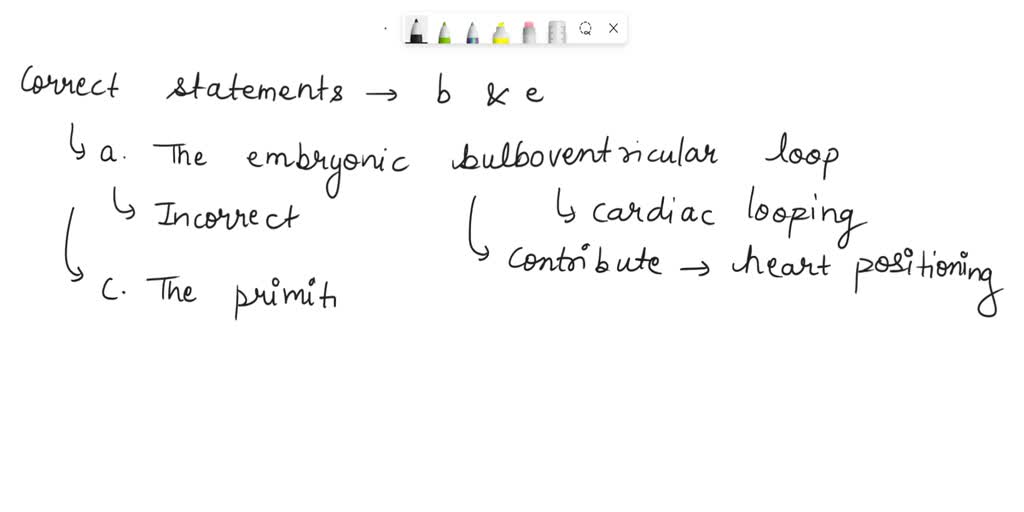 Correct statements → b & e
↳ a. The embryonic bulboventricular loop
↳ Incorrect
↳ cardiac looping
↳ contribute → heart positioning
↳ c. The primiti